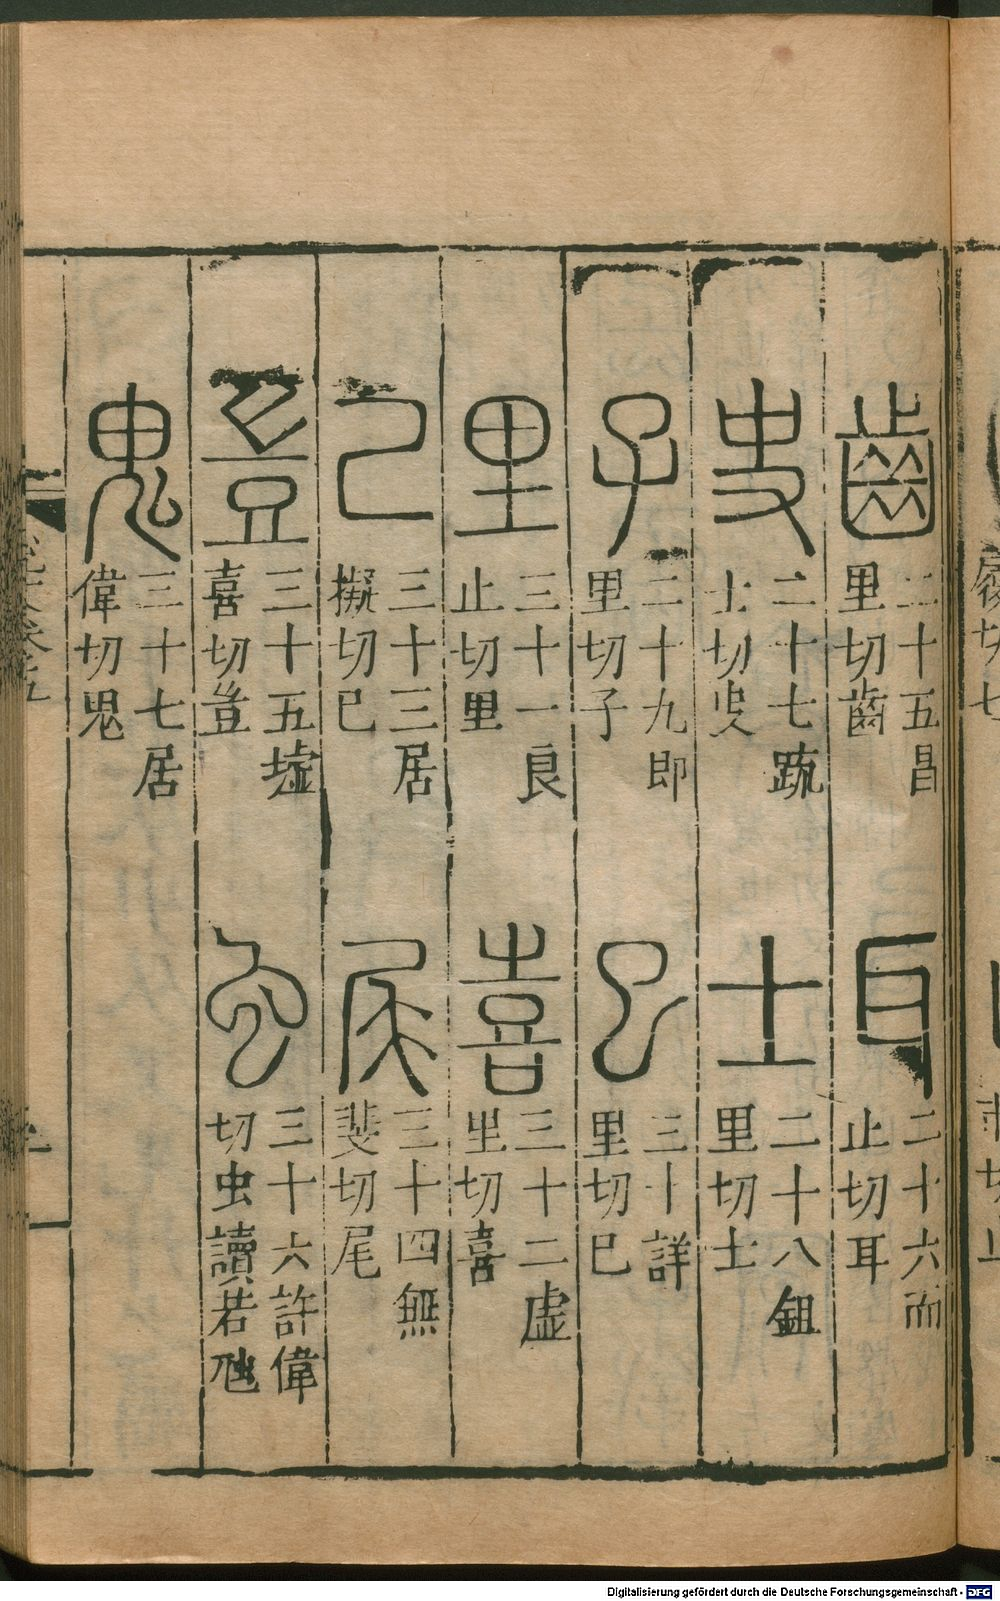 齒
二十五昌
里切齒
耳
二十六而
止切耳
𠭖
二十七䟽
士切
士
二十八鉏
里切士
子
二十九即
里切子
巳
三十詳
里切巳
里
三十一良
止切里
喜
三十二虛
里切喜
己
三十三居
擬切己
尾
三十四無
斐切尾
豈
三十五墟
喜切豈
虫
三十六許偉
切虫讀若虺
鬼
三十七居
偉切鬼
Digitalisierung gefördert durch die Deutsche Forschungsgemeinschaft - DFG